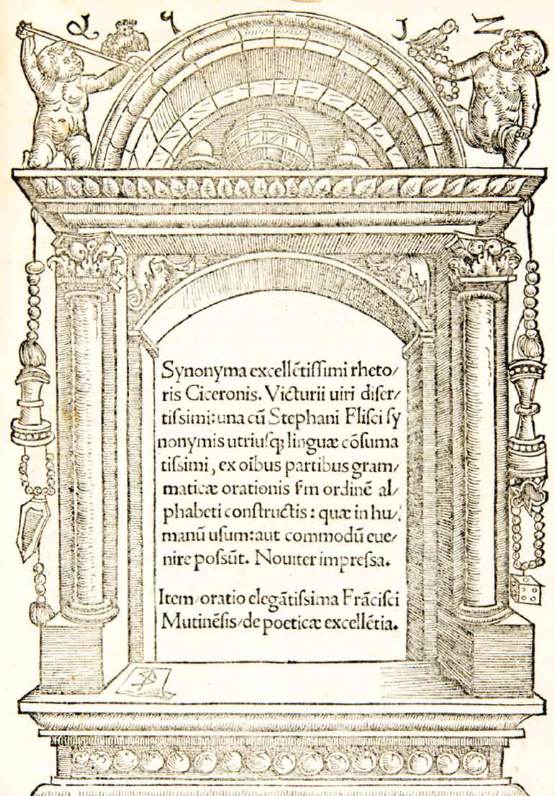 Synonyma excellẽtissimi rheto/
ris Ciceronis. Victurii uiri diser/
tissimi: una cũ Stephani Flisci sy
nonymis utriusq; linguæ cõsuma
tissimi, ex oibus partibus gram/
maticæ orationis fm ordinẽ al/
phabeti constructis: quæ in hu/
manũ usum: aut commodũ eue/
nire possũt. Nouiter impressa.
Item/oratio elegãtissima Frãcisci
Mutinẽsis/de poeticæ excellẽtia.